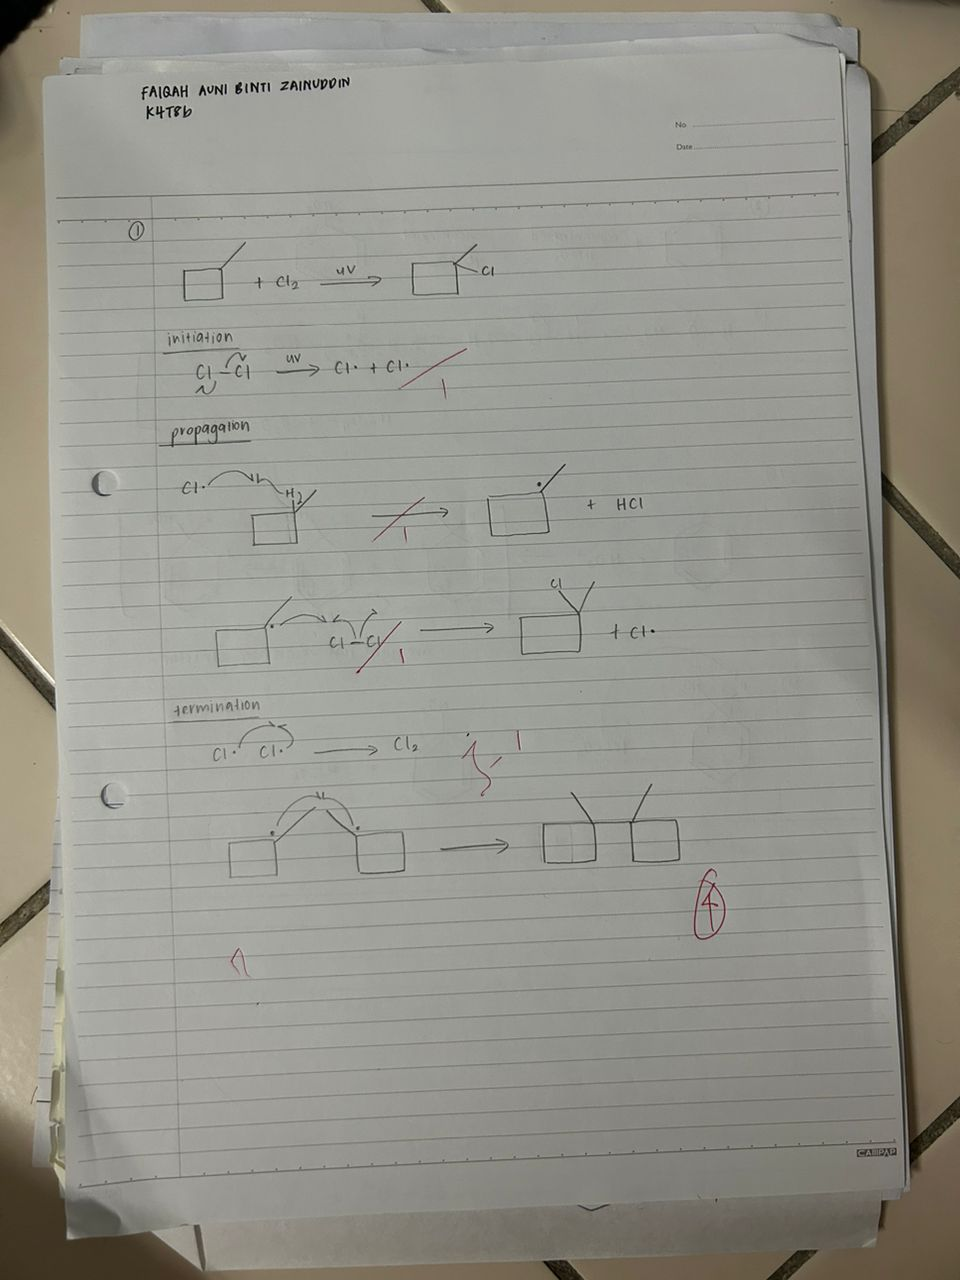 FAIQAH AUNI BINTI ZAINUDDIN
K4T8b
No
Date
1
+ Cl2 uv Cl
initiation
Cl–Cl uv → Cl• + Cl•
1
propagation
Cl• H → • + HCl
1
• Cl–Cl → Cl + Cl•
1
termination
Cl• Cl• → Cl2
1
4
CAMPAP